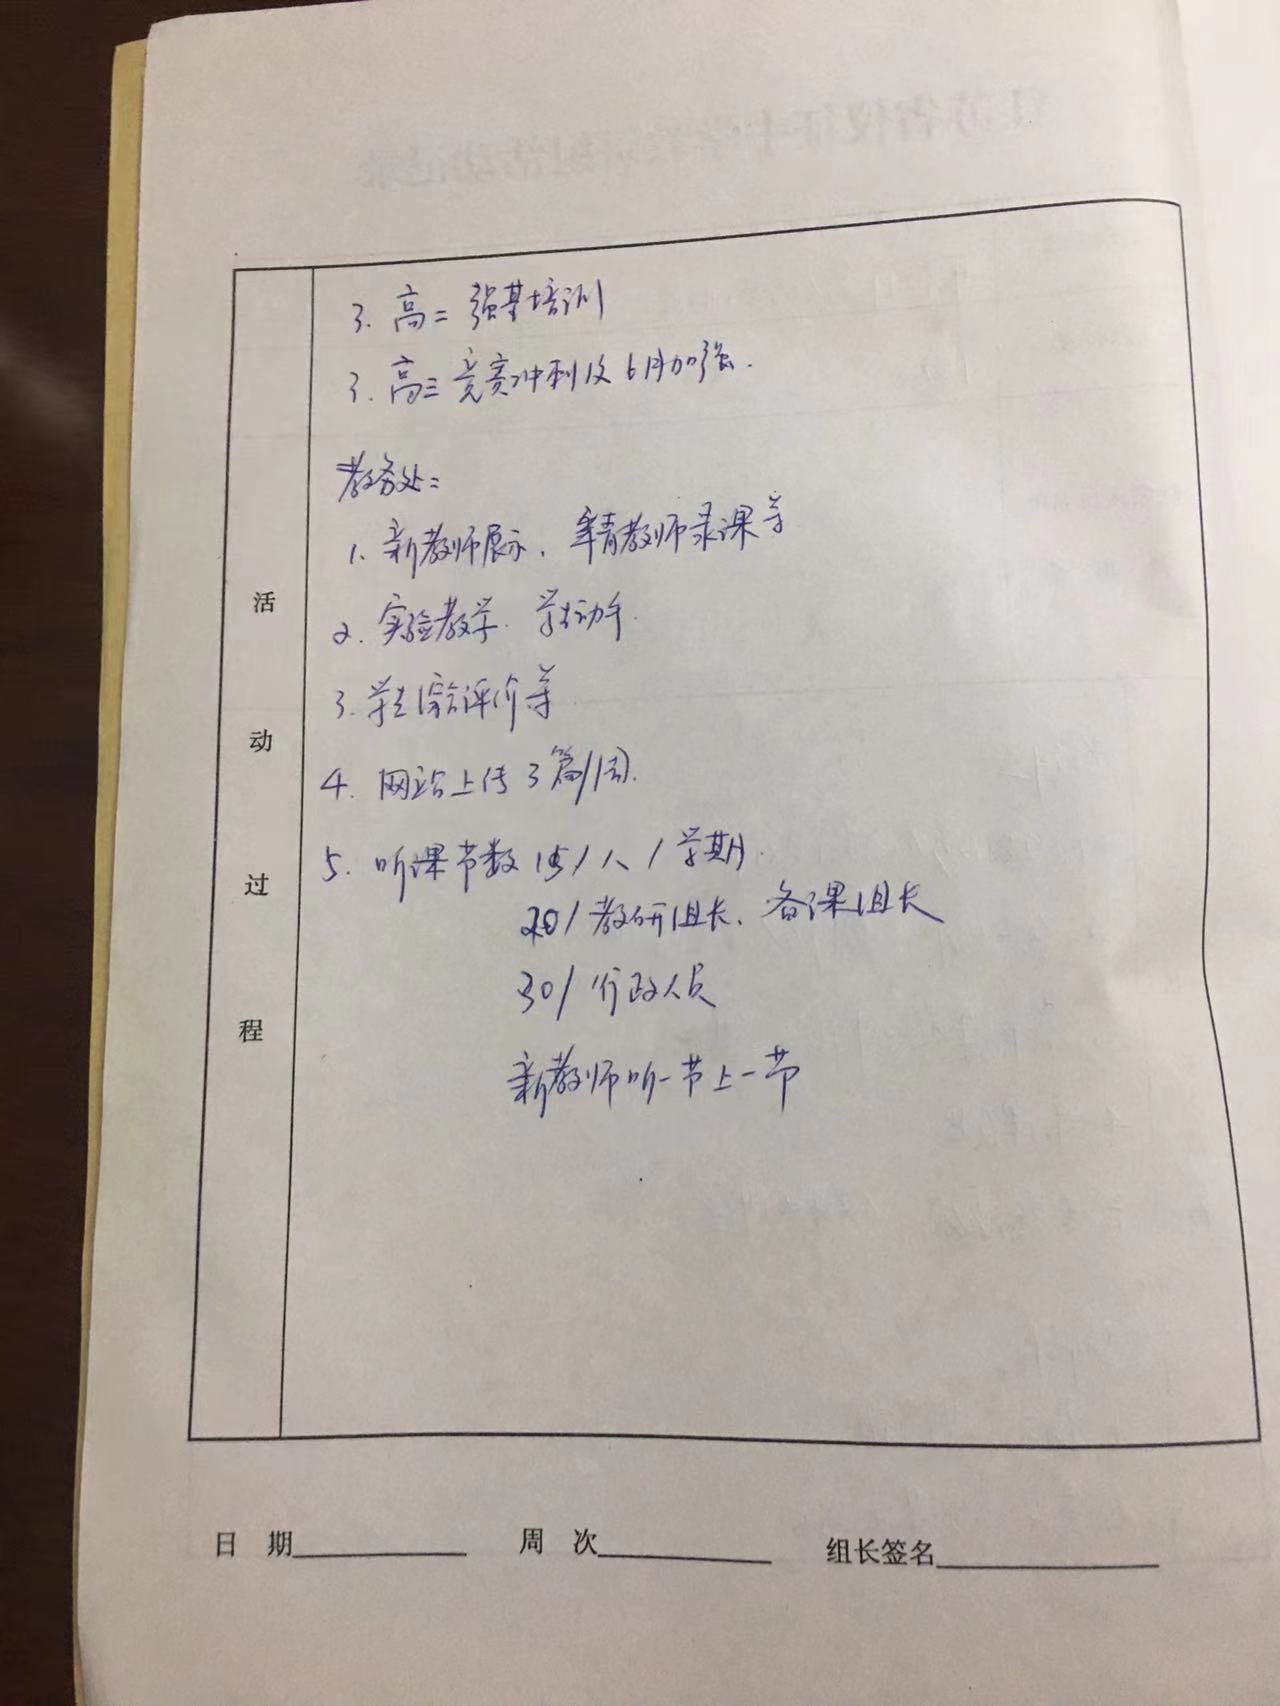 3. 高二 强基培训
3. 高三 竞赛冲刺及6月加强.
教务处:
1. 新教师展示、年青教师录课等
2. 实验教学. 学生动手.
3. 学生综合评价等
4. 网站上传3篇/周.
5. 听课节数 15/人/学期.
20/教研组长、备课组长
30/行政人员
新教师听一节上一节
活
动
过
程
日 期
周 次
组长签名